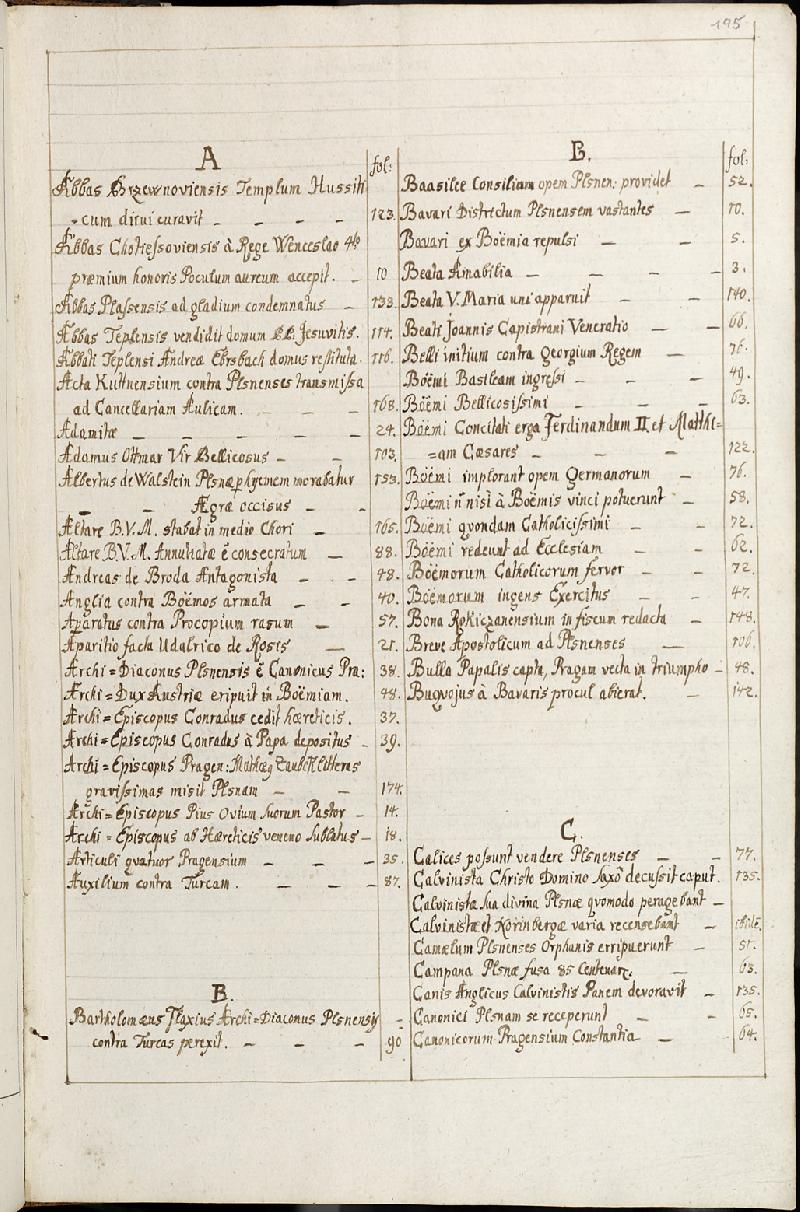 195
A
fol:
Abbas Brzewnoviensis Templum Hussiti
=cum dirui curavit 123.
Abbas Chotiessoviensis à Rege Wenceslao 4to
præmium honoris Poculum aureum accepit. 10
Abbas Plassensis ad gladium condemnatus 133.
Abbas Teplensis vendidit domum RR. Jesuvitis. 114.
Abbati Teplensi Andreæ Ebrsbach domus restituta. 116.
Acta Kuttnensium contra Plsnenses transmissa
ad Cancellariam Aulicam. 168.
Adamitæ 24.
Adamus Ottmar Vir Bellicosus 103.
Albertus de Walstein Plsnæ p hyemem morabatur 153.
Ægræ occisus
Altare B.V.M. stabat in medio Chori 165.
Altare B.V.M. Annuntiatæ ē consecratum 88.
Andreas de Broda Antagonista 48.
Anglia contra Boëmos armata 40.
Aparatus contra Procopium rasum 57.
Aparitio facta Udalrico de Rosis 21.
Archi=Diaconus Plsnensis ē Canonicus Pra: 38.
Archi=Dux Austriæ eripuit in Boëmiam. 48.
Archi=Episcopus Conradus cedit hæreticis. 37.
Archi=Episcopus Conradus à Papa depositus 39.
Archi=Episcopus Pragen: litteras
gravissimas misit Plsnam 174.
Archi=Episcopus Pius Ovium suorum Pastor 14.
Archi=Episcopus ab Hæreticis veneno sublatus 18.
Articuli qvatuor Pragensium 35.
Auxilium contra Turcam. 87.
B.
Bartholomæus Flaxius Archi=Diaconus Plsnensis
contra Turcas perexit. 90
B.
fol:
Baasilee Consilium opem Plsnen: providet 52.
Bavari Districtum Plsnensem vastantes 70.
Bavari ex Boëmia repulsi 5.
Beata Amabilia 3.
Beata V. Maria uni apparuit 140.
Beati Joannis Capistrani Veneratio 66.
Belli initium contra Georgium Regem 76.
Boëmi Basileam ingressi 49.
Boëmi Bellicosissimi 63.
Boëmi Concitati erga Ferdinandum II. et Matthi=
=am Cæsares 122.
Boëmi implorant opem Germanorum 76.
Boëmi n̄ nisi à Boëmis vinci potuerunt 58.
Boëmi qvondam Catholicissimi 72.
Boëmi redeunt ad Ecclesiam 62.
Boëmorum Catholicorum fervor 72.
Boëmorum ingens Exercitus 47.
Bona Rokiczanensium in fiscum redacta 148.
Breve Apostolicum ad Plsnenses 106.
Bulla Papalis capta, Pragam vecta in triumpho 48.
Buqvojus à Bavaris procul abierat. 142.
C.
Calices possunt vendere Plsnenses 77.
Calvinista Christo Domino saxo decussit caput. 135.
Calvinistæ sua divina Plsnæ qvomodo peragebant
Calvinistæ et Norinbergæ varia recensebant ibide.
Camælum Plsnenses Orphanis erripuerunt 51.
Campana Plsnæ fusa 85 Centenar. 63.
Canis Anglicus Calvinistis Panem devoravit 135.
Canonici Plsnam se receperunt 65.
Canonicorum Pragensium Constantia 64.